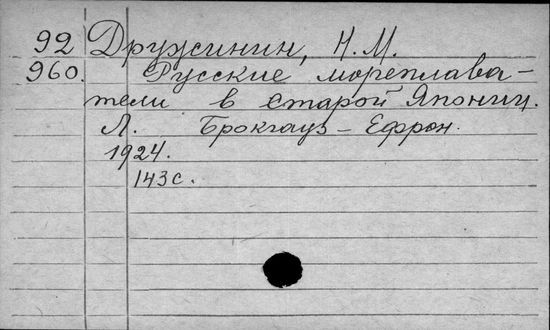 92 Дружинин, Н. М.
960. Русские морепплава-
тели в старой Японии.
Л. Брокгауз - Ефрон.
1924.
143 с.